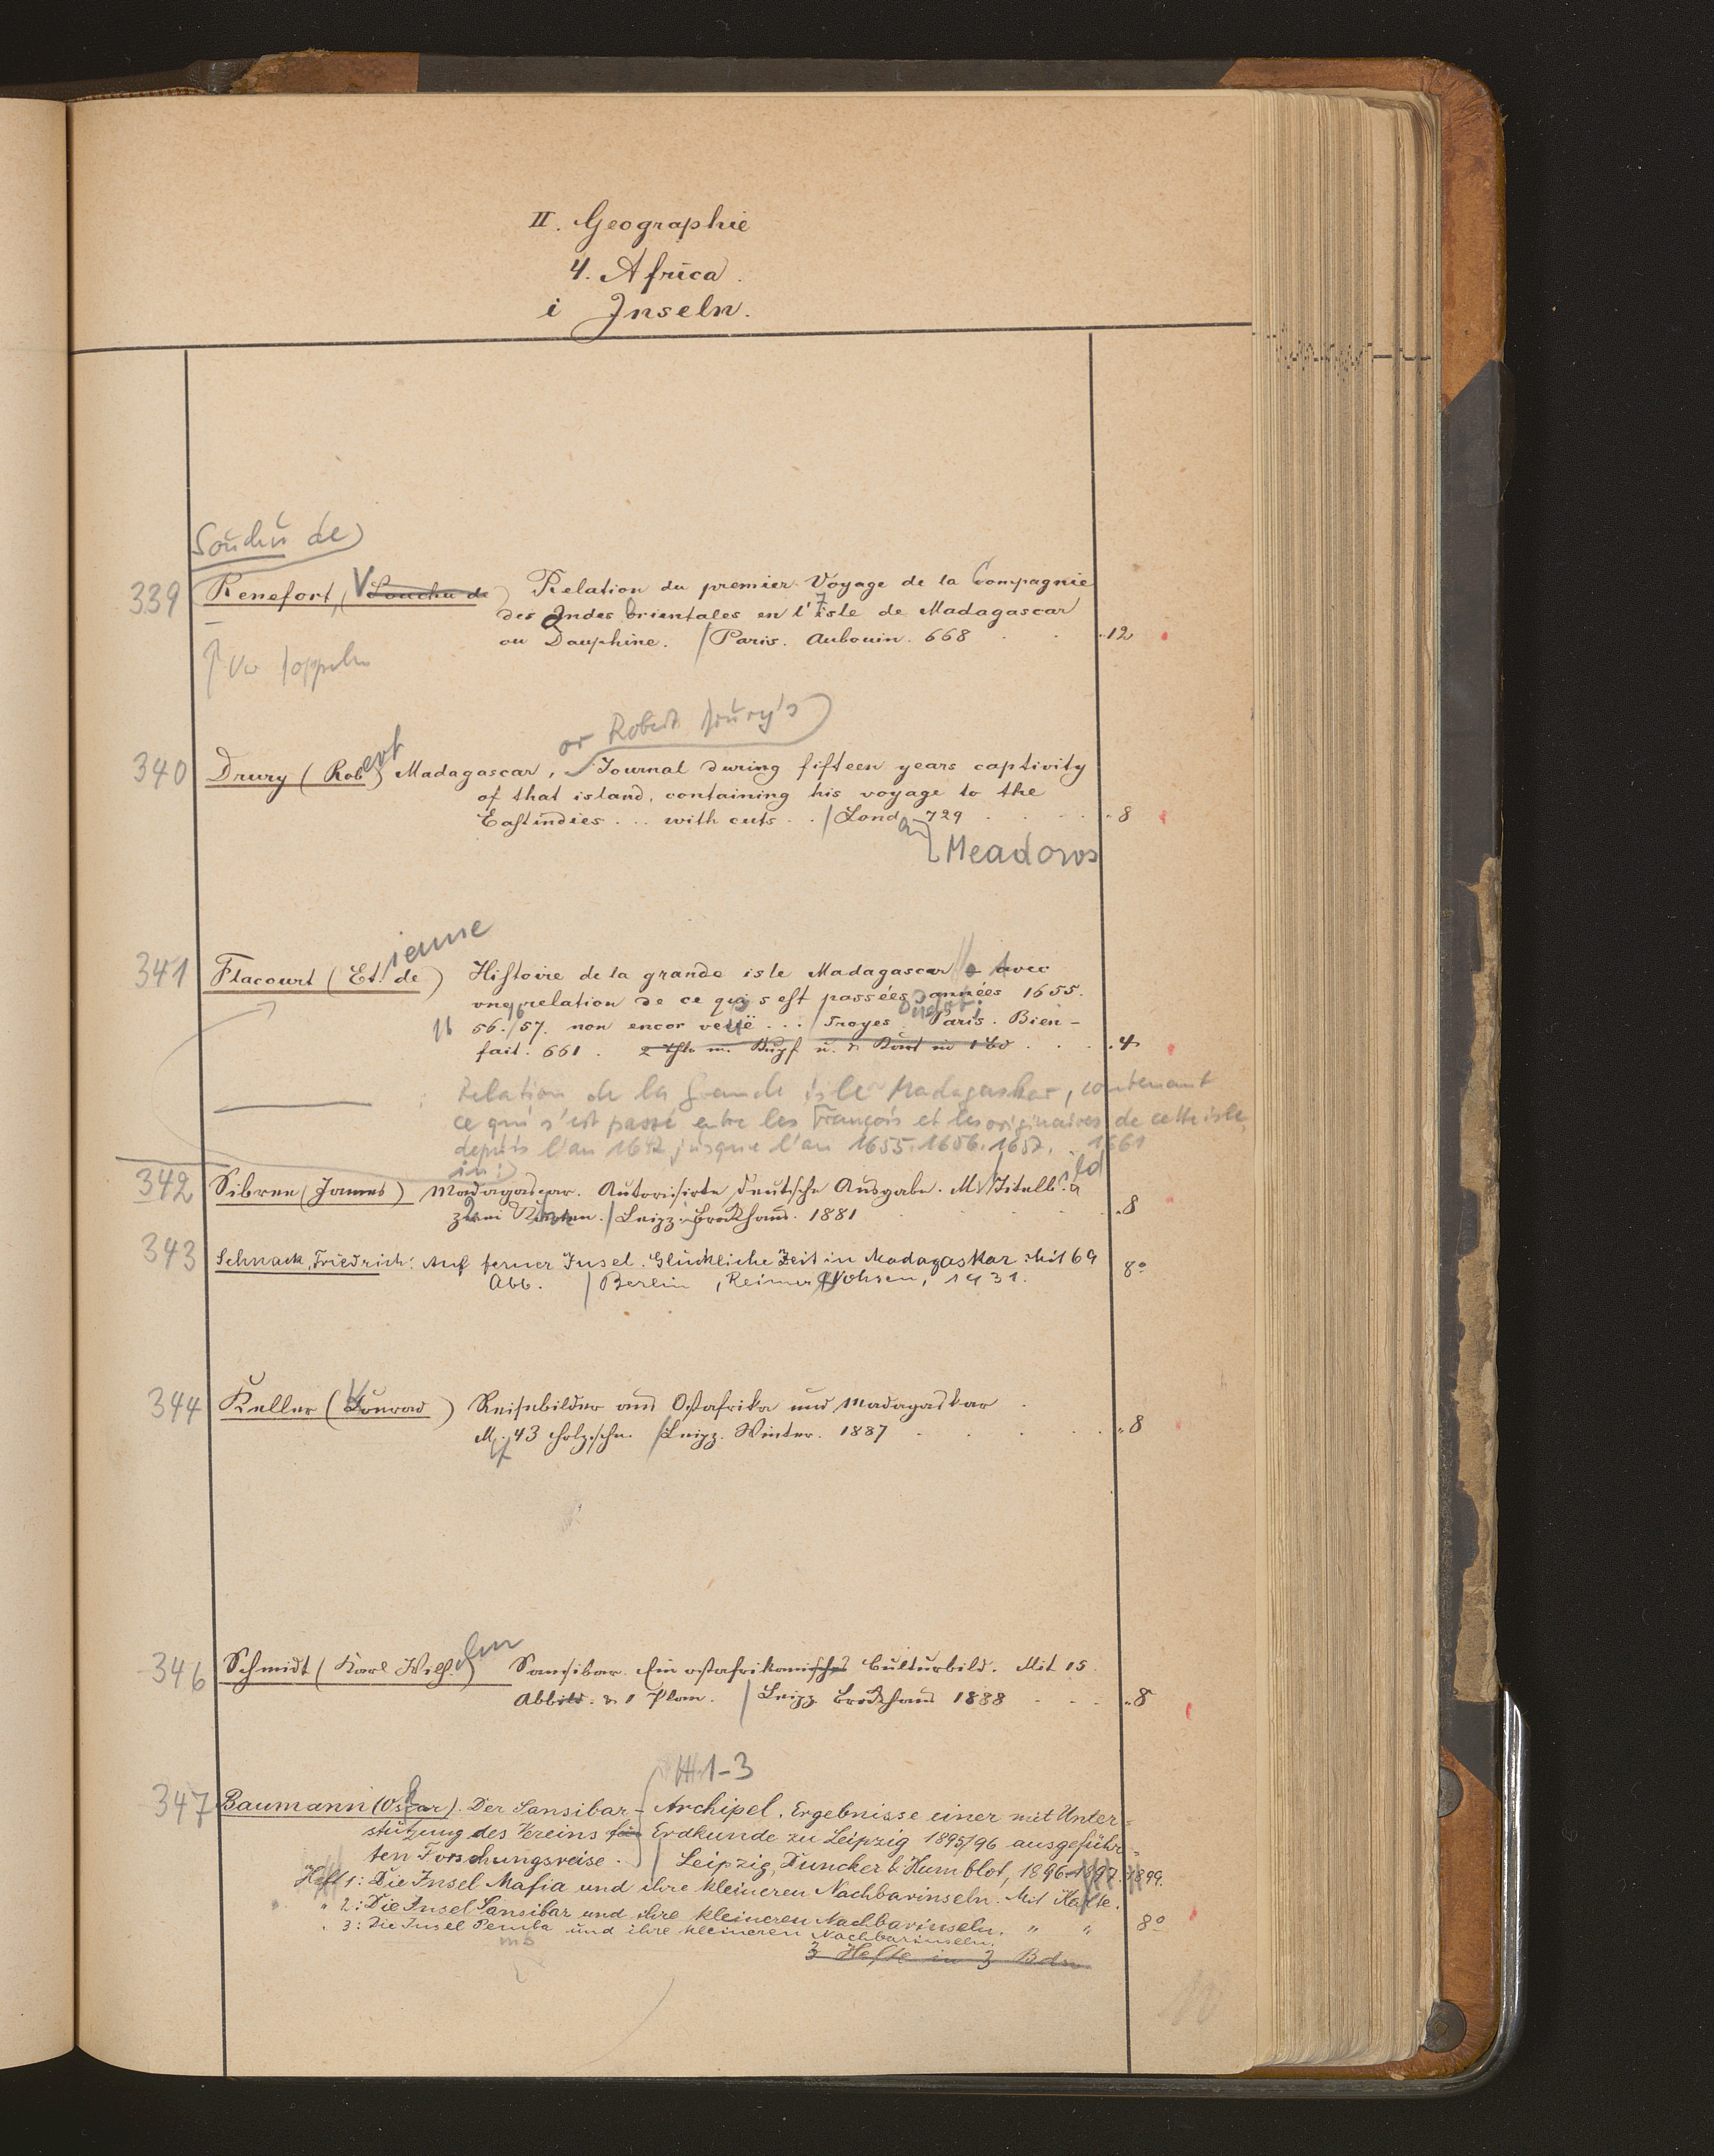 II. Geographie
4. Africa.
i Inseln.
Souchu de
339 Renefort, (Souchu de) Relation du premier Voyage de la Compagnie
des Indes Orientales en l'Isle de Madagascar
ou Dauphine. / Paris. Aubouin. 668 12
or Robert Drury's
340 Drury (Robert) Madagascar, Journal during fifteen years captivity
of that island, containing his voyage to the
Eastindies ... with cuts .. / Lond. 729 8
Meadows
341 Flacourt (Etienne de) Histoire de la grande isle Madagascar avec
une relation de ce qui s'est passé es années 1655.
56. 57. non encor veuë ... / Troyes Oudot; Paris. Bien-
fait. 661. 2 Thle m. Kupf u. Kart in 1 Bd 4
Relation de la Grande isle Madagaskar, contenant
ce qui s'est passé entre les François et les originaires de cette isle
depuis l'an 1642 jusque l'an 1655. 1656. 1657. 1661
in:
342 Sibree (James) Madagascar. Autorisirte deutsche Ausgabe. M. Titelbild
zwei Karten. / Leipz. Brockhaus. 1881 8
343 Schnack, Friedrich: Auf ferner Insel. Glückliche Zeit in Madagaskar. Mit 69
Abb. / Berlin, Reimer Vohsen, 1931. 8°
344 Keller (Konrad) Reisebilder aus Ostafrika und Madagaskar
M. 43 Holzschn. / Leipz. Winter. 1887 8
346 Schmidt (Karl Wilhelm) Sansibar. Ein ostafrikanisches Culturbild. Mit 15
Abbild. & 1 Plan. / Leipz. Brockhaus 1888 8
H 1-3
347 Baumann (Oskar). Der Sansibar-Archipel. Ergebnisse einer mit Unter=
stützung des Vereins für Erdkunde zu Leipzig 1895/96 ausgeführ=
ten Forschungsreise. / Leipzig, Duncker & Humblot, 1896-1897. 1899.
Heft 1: Die Insel Mafia und ihre kleineren Nachbarinseln. Mit Karte.
" 2: Die Insel Sansibar und ihre kleineren Nachbarinseln. " " 8°
" 3: Die Insel Pemba und ihre kleineren Nachbarinseln.
mb
3 Hefte in 3 Bdn